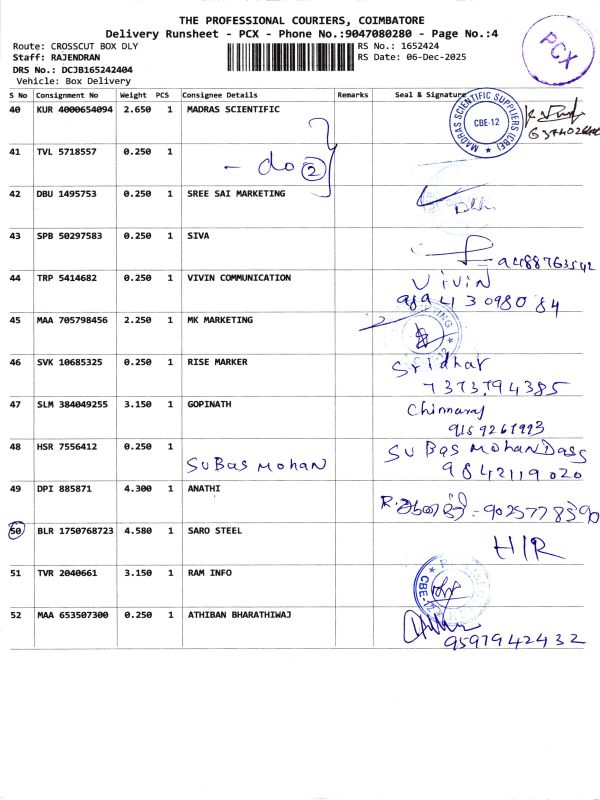 THE PROFESSIONAL COURIERS, COIMBATORE
Delivery Runsheet - PCX - Phone No.:9047080280 - Page No.:4
Route: CROSSCUT BOX DLY
Staff: RAJENDRAN
DRS No.: DCJB165242404
Vehicle: Box Delivery
RS No.: 1652424
RS Date: 06-Dec-2025
PCX
S No Consignment No Weight PCS Consignee Details Remarks Seal & Signature
40 KUR 4000654094 2.650 1 MADRAS SCIENTIFIC
MADRAS SCIENTIFIC SUPPLIERS (CBE) CBE-12
41 TVL 5718557 0.250 1
- do 2
42 DBU 1495753 0.250 1 SREE SAI MARKETING
43 SPB 50297583 0.250 1 SIVA
9488763542
44 TRP 5414682 0.250 1 VIVIN COMMUNICATION
Vivin
45 MAA 705798456 2.250 1 MK MARKETING
46 SVK 10685325 0.250 1 RISE MARKER
Sridhar
7373794385
47 SLM 384049255 3.150 1 GOPINATH
Chinnaraj
48 HSR 7556412 0.250 1
SuBas mohan
SuBas mohanDass
9842119020
49 DPI 885871 4.300 1 ANATHI
50 BLR 1750768723 4.580 1 SARO STEEL
H/R
51 TVR 2040661 3.150 1 RAM INFO
52 MAA 653507300 0.250 1 ATHIBAN BHARATHIWAJ
9597942432